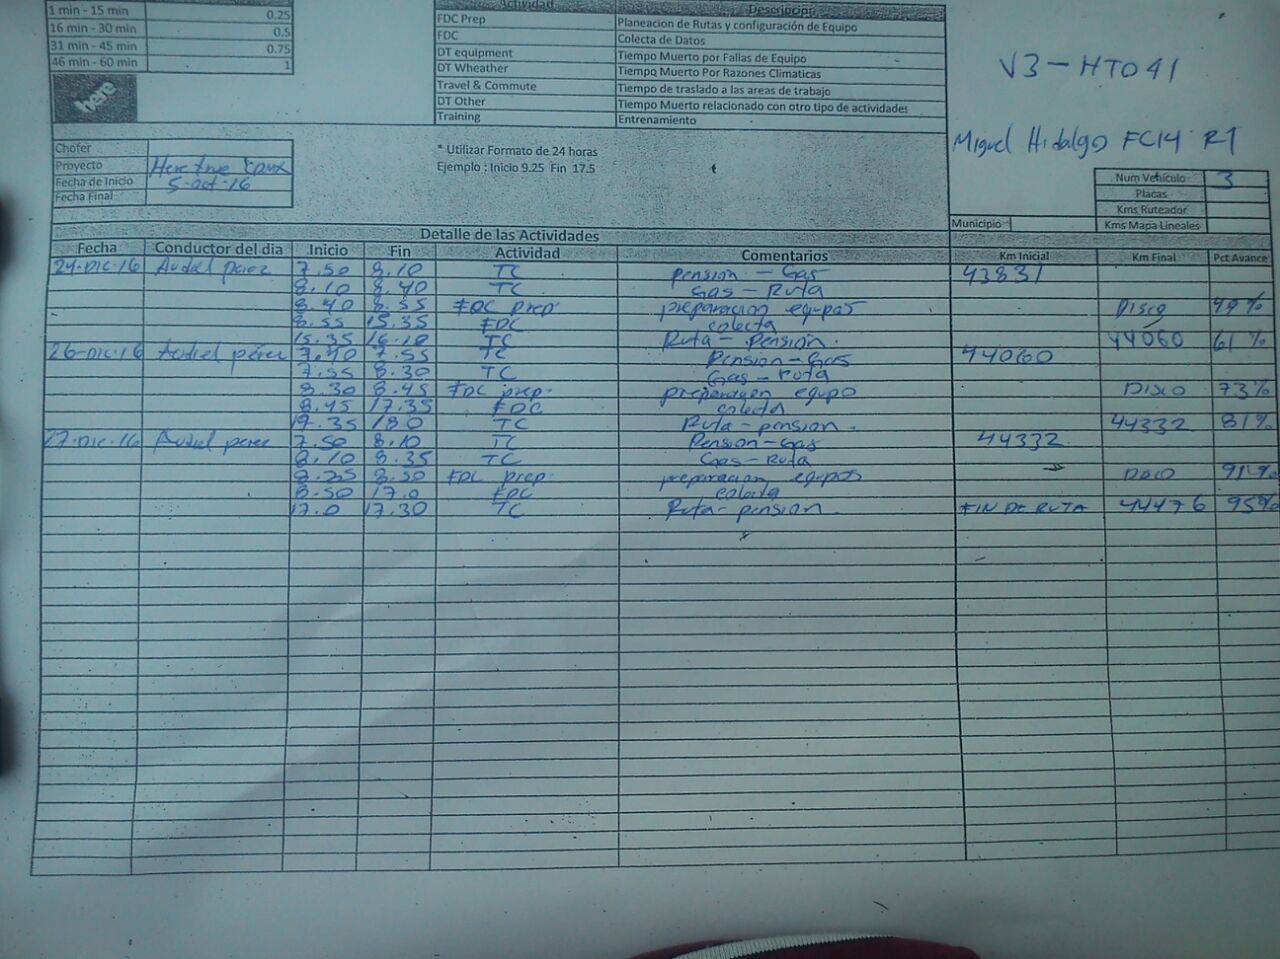 Actividad Descripcion
1 min - 15 min 0.25
16 min - 30 min 0.5
31 min - 45 min 0.75
46 min - 60 min 1
FDC Prep Planeacion de Rutas y configuración de Equipo
FDC Colecta de Datos
DT equipment Tiempo Muerto por Fallas de Equipo
DT Wheather Tiempo Muerto Por Razones Climaticas
Travel & Commute Tiempo de traslado a las areas de trabajo
DT Other Tiempo Muerto relacionado con otro tipo de actividades
Training Entrenamiento
here
V3-HT041
Miguel Hidalgo FC14 R1
Chofer
Proyecto Here true
Fecha de Inicio 5-oct-16
Fecha Final
* Utilizar Formato de 24 horas
Ejemplo : Inicio 9.25 Fin 17.5
Num Vehículo 3
Placas
Kms Ruteador
Municipio Kms Mapa Lineales
Detalle de las Actividades
Fecha Conductor del dia Inicio Fin Actividad Comentarios Km Inicial Km Final Pct Avance
24-Dic-16 Audiel perez 7.50 8.10 TC pension - Gas 43831
8.10 8.40 TC Gas - Ruta
8.40 8.55 FDC prep. preparacion equipos Disco 49%
8.55 15.35 FDC colecta
15.35 16.10 TC Ruta - pension. 44060 61%
26-Dic-16 Audiel pérez 7.40 7.55 TC Pension-Gas 44060
7.55 8.30 TC Gas - ruta
8.30 8.45 FDC prep. preparacion equipo DISCO 73%
8.45 17.35 FDC colecta
17.35 180 TC Ruta - pension. 44332 81%
27-Dic-16 Audiel perez 7.50 8.10 TC Pension-Gas 44332
8.10 8.35 TC Gas - Ruta
8.50 FDC prep. preparacion equipos Disco 91%
8.50 17.0 FDC colecta
17.0 17.30 TC Ruta - pension. FIN DE RUTA 44476 95%